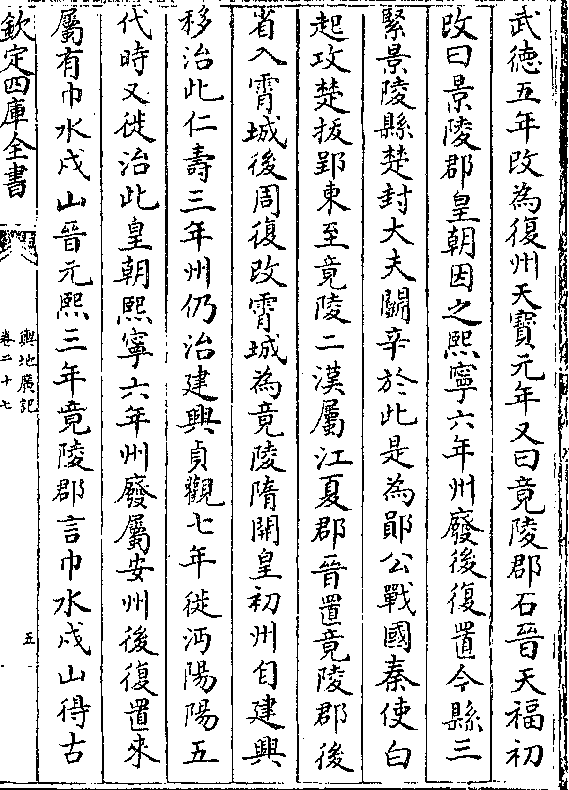 武徳五年改為復州天寶元年又曰竟陵郡石晉天福初
改曰景陵郡皇朝因之熙寧六年州廢後復置今縣三
緊景陵縣楚封大夫鬭辛於此是為鄖公戰國秦使白
起攻楚拔郢東至竟陵二漢屬江夏郡晉置竟陵郡後
省入霄城後周復改霄城為竟陵隋開皇初州自建興
移治此仁壽三年州仍治建興貞觀七年徙沔陽陽五
代時又徙治此皇朝熙寧六年州廢屬安州後復置來
屬有巾水戍山晉元熙三年竟陵郡言巾水戍山得古
欽定四庫全書
輿地廣記
卷二十七
五